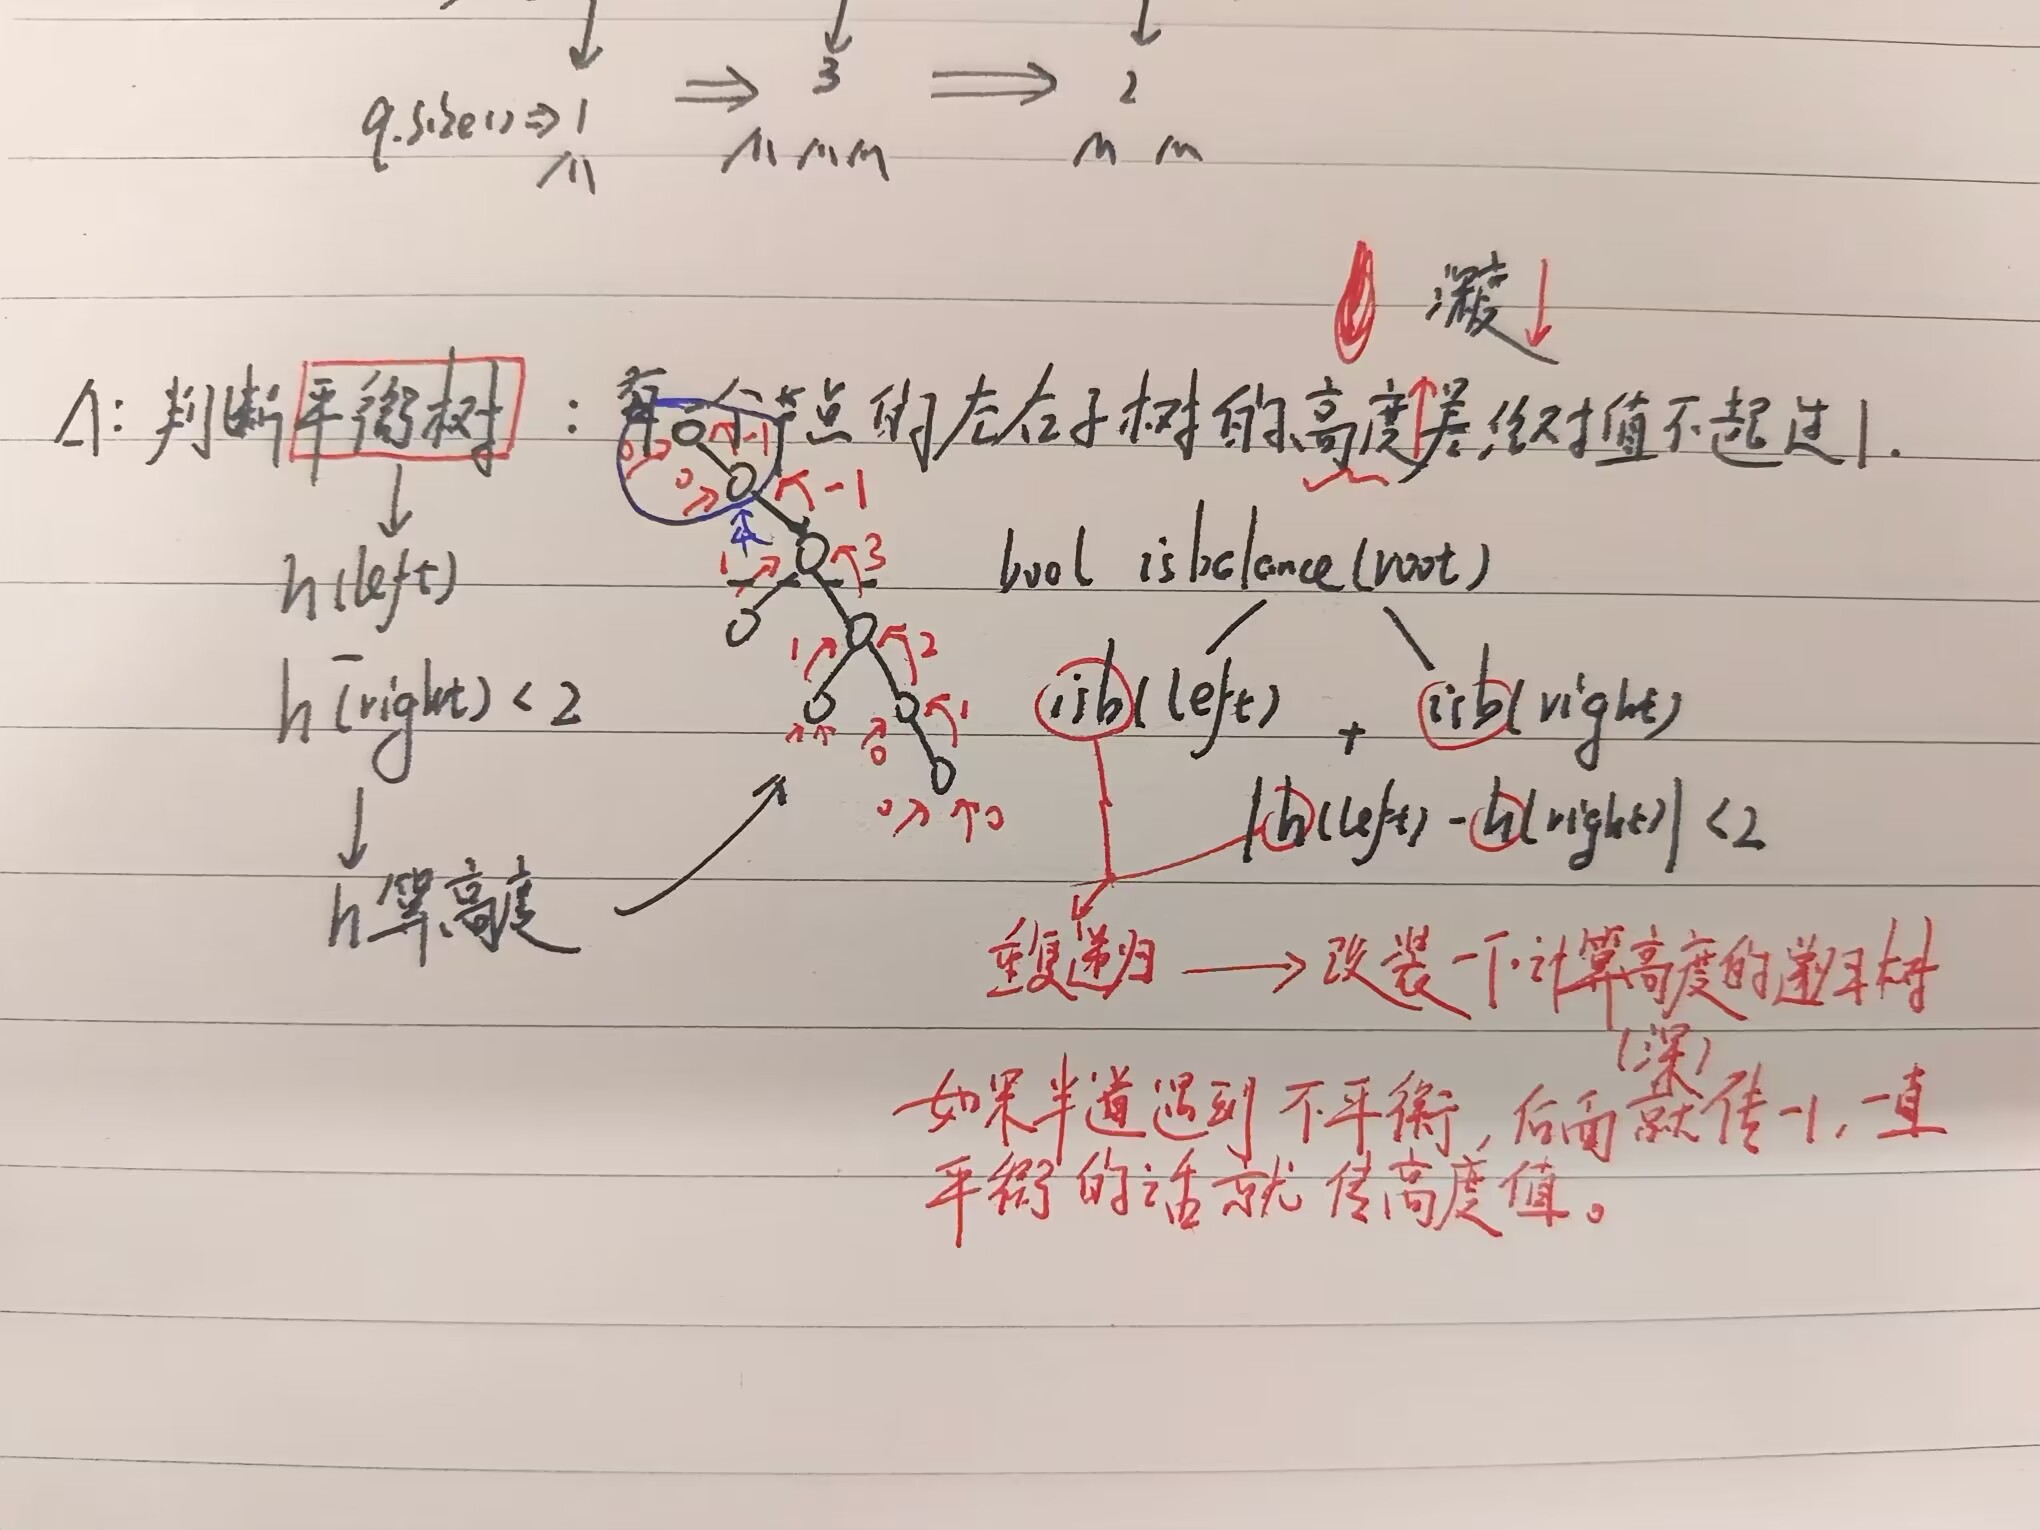 q.size() ⇒ 1 ⇒ 3 ⇒ 2
深度 ↓
Δ: 判断平衡树: 每个节点的左右子树的高度↑差绝对值不超过1.
h(left)
-
h(right) < 2
h算高度
0 -1
0 -1
1 3
1 2
0 1
0 0
bool isbalance(root)
isb(left) + isb(right)
|h(left) - h(right)| < 2
重复递归 → 改装一下计算高度的递归树
(深)
如果半道遇到不平衡, 后面就传-1, 一直
平衡的话就传高度值。